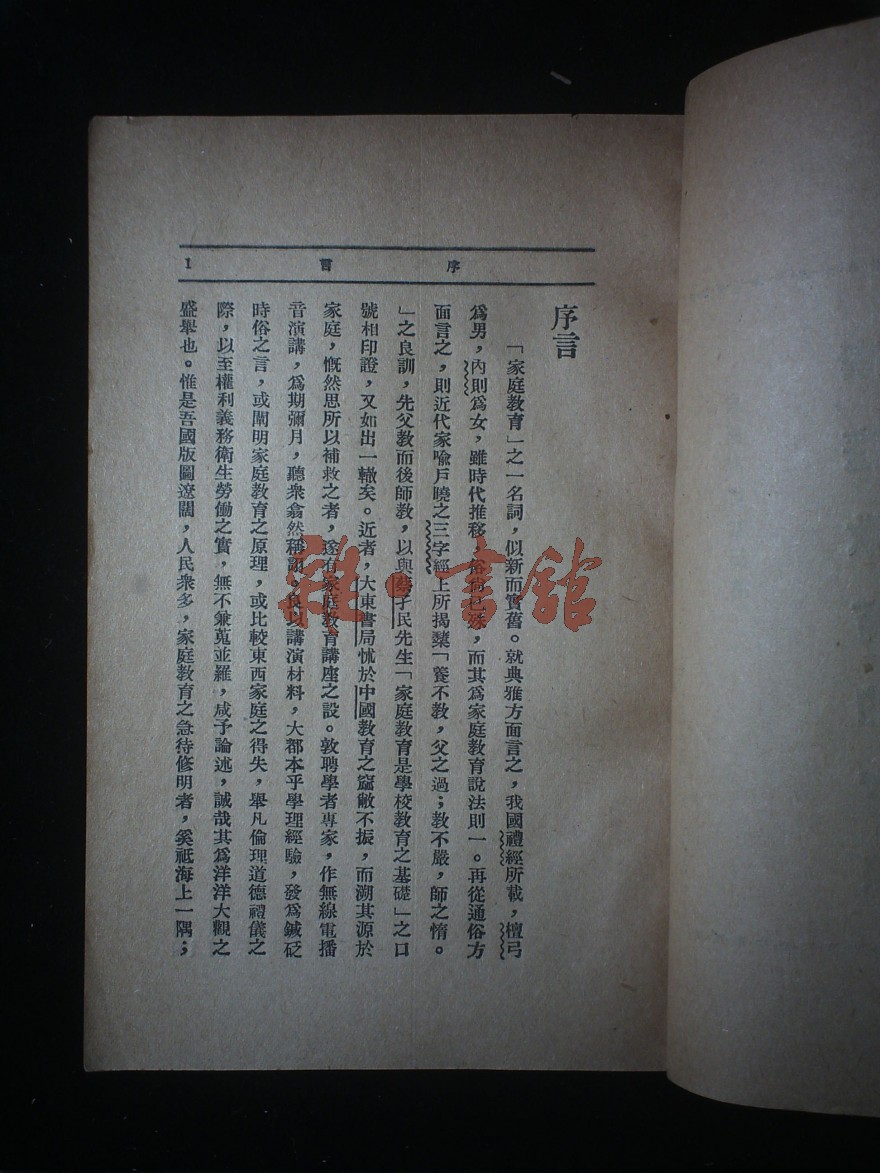 序言
1
序言
「家庭教育」之一名詞，似新而實舊。就典雅方面言之，我國禮經所載，檀弓
爲男，內則爲女，雖時代推移，俗尚已殊，而其爲家庭教育說法則一。再從通俗方
面言之，則近代家喻戶曉之三字經上所揭櫫「養不教，父之過；教不嚴，師之惰。
」之良訓，先父教而後師教，以與蔡孑民先生「家庭教育是學校教育之基礎」之口
號相印證，又如出一轍矣。近者，大東書局怵於中國教育之窳敝不振，而溯其源於
家庭，慨然思所以補救之者，遂有家庭教育講座之設。敦聘學者專家，作無線電播
音演講，爲期彌月，聽衆翕然稱詡。良以講演材料，大都本乎學理經驗，發爲鍼砭
時俗之言，或闡明家庭教育之原理，或比較東西家庭之得失，舉凡倫理道德禮儀之
際，以至權利義務衛生勞働之實，無不兼蒐並羅，咸予論述，誠哉其爲洋洋大觀之
盛舉也。惟是吾國版圖遼闊，人民衆多，家庭教育之急待修明者，奚祗海上一隅；
雜·書館